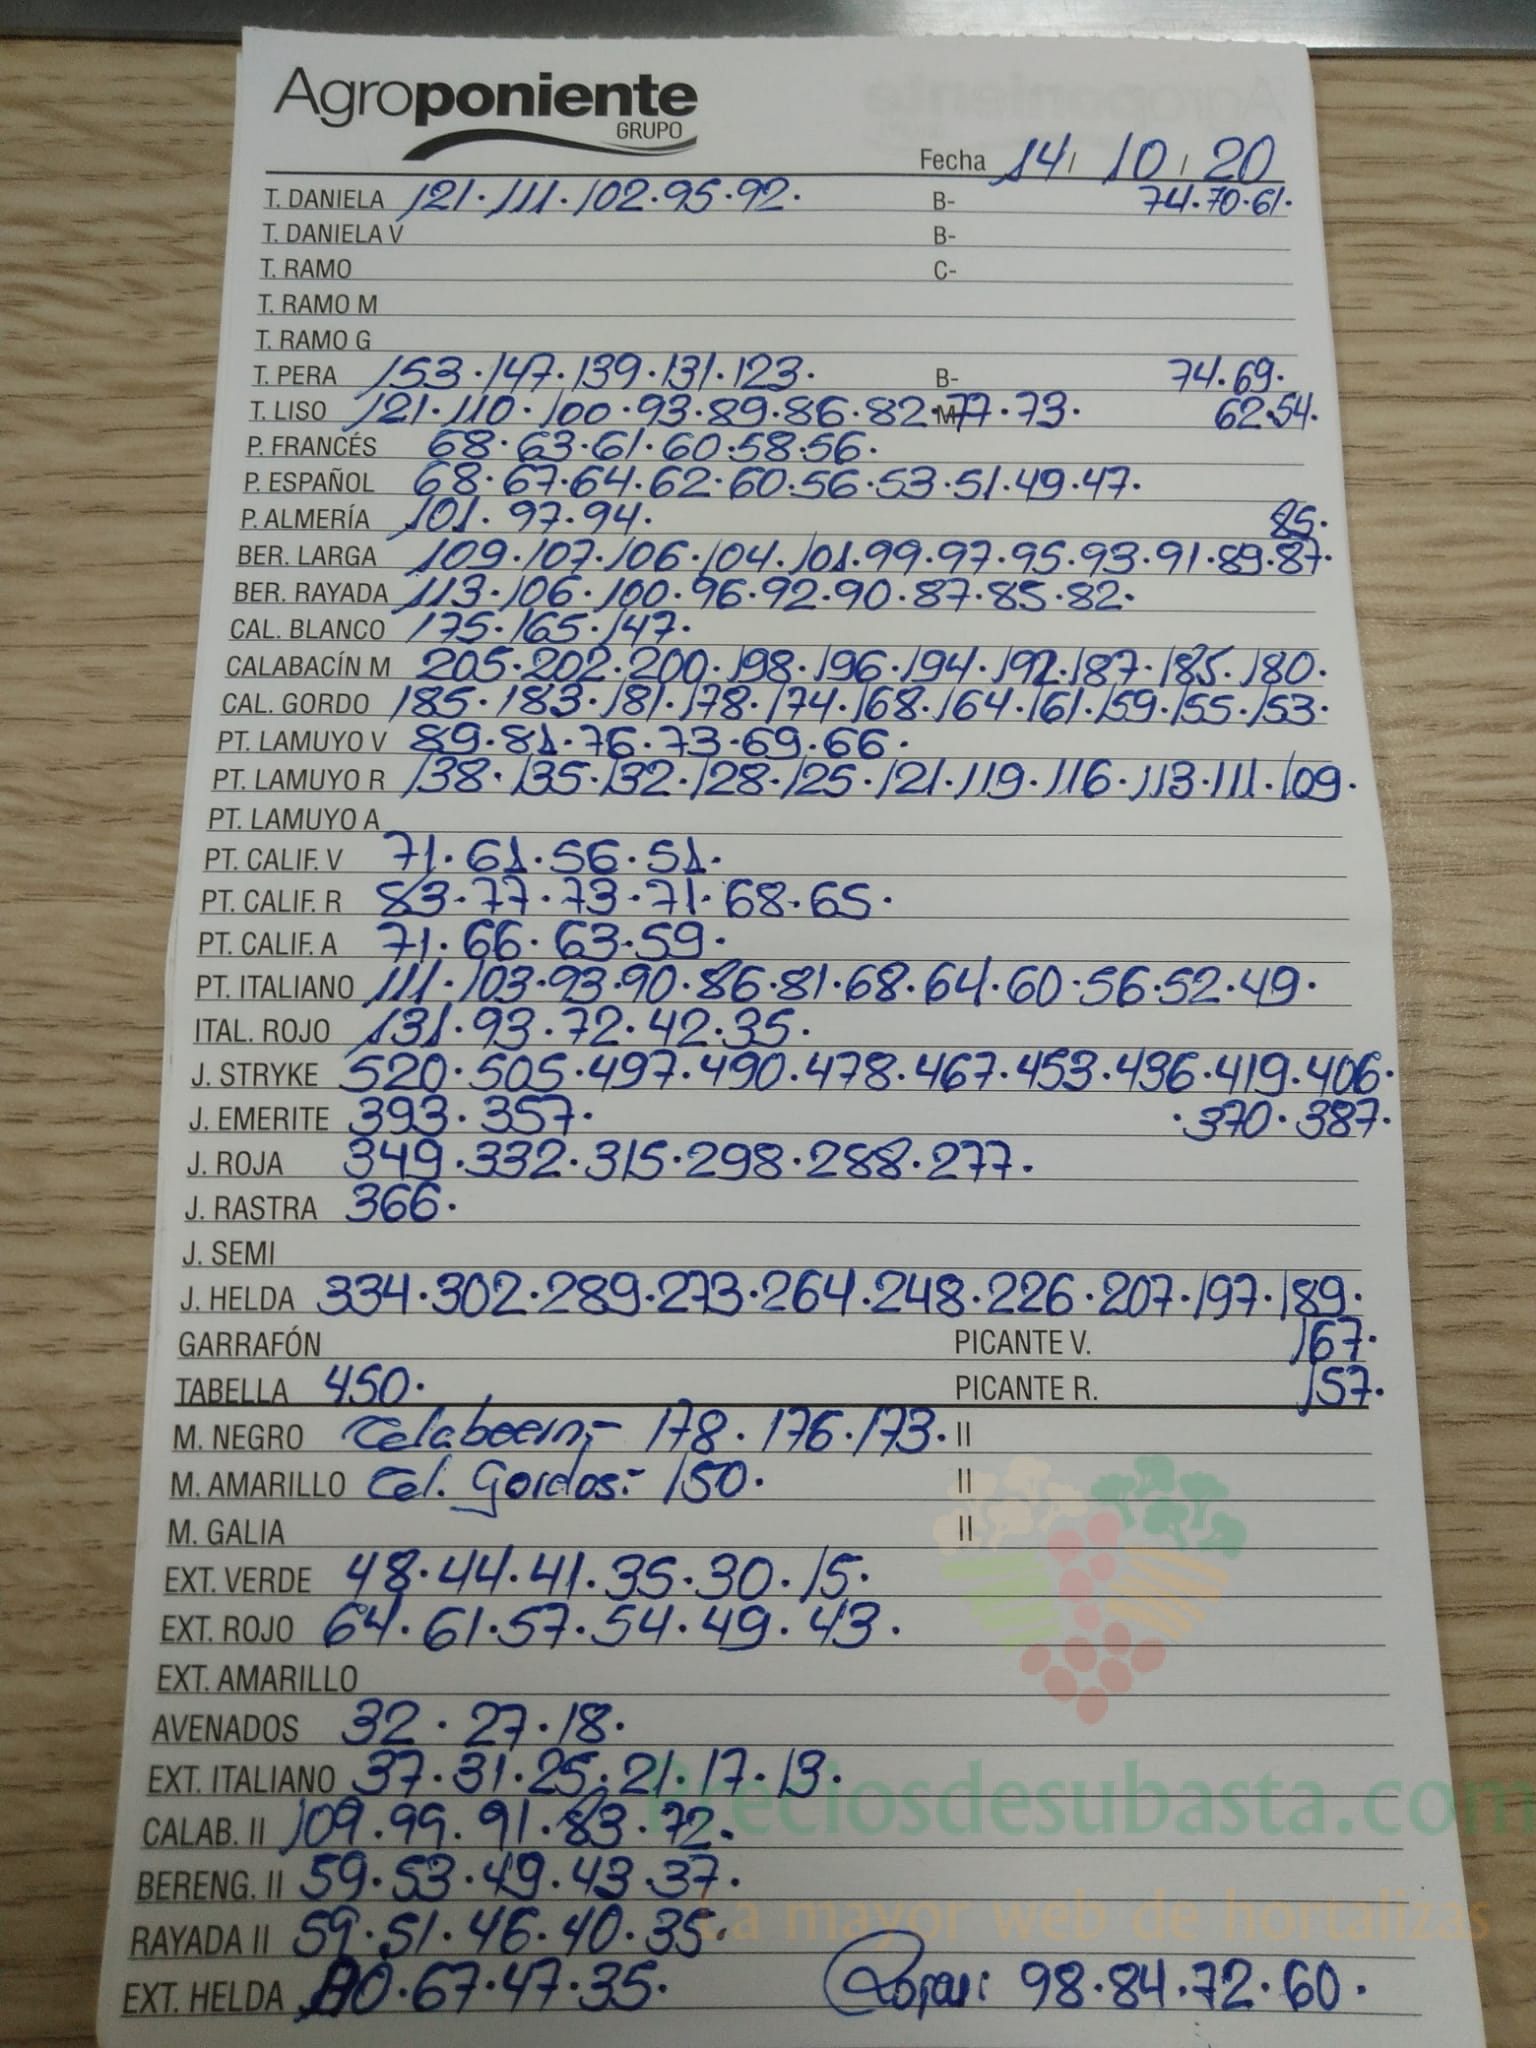 Agroponiente
GRUPO
Fecha 14 / 10 / 20
T. DANIELA 121·111·102·95·92· B- 74·70·61·
T. DANIELA V B-
T. RAMO C-
T. RAMO M
T. RAMO G
T. PERA 153·147·139·131·123· B- 74·69·
T. LISO 121·110·100·93·89·86·82·77·73· M- 62·54·
P. FRANCÉS 68·63·61·60·58·56·
P. ESPAÑOL 68·67·64·62·60·56·53·51·49·47·
P. ALMERÍA 101·97·94· 85·
BER. LARGA 109·107·106·104·101·99·97·95·93·91·89·87·
BER. RAYADA 113·106·100·96·92·90·87·85·82·
CAL. BLANCO 175·165·147·
CALABACÍN M 205·202·200·198·196·194·192·187·185·180·
CAL. GORDO 185·183·181·178·174·168·164·161·159·155·153·
PT. LAMUYO V 89·81·76·73·69·66·
PT. LAMUYO R 138·135·132·128·125·121·119·116·113·111·109·
PT. LAMUYO A
PT. CALIF. V 71·61·56·51·
PT. CALIF. R 83·77·73·71·68·65·
PT. CALIF. A 71·66·63·59·
PT. ITALIANO 111·103·93·90·86·81·68·64·60·56·52·49·
ITAL. ROJO 131·93·72·42·35·
J. STRYKE 520·505·497·490·478·467·453·436·419·406·
J. EMERITE 393·357· ·370·387·
J. ROJA 349·332·315·298·288·277·
J. RASTRA 366·
J. SEMI
J. HELDA 334·302·289·273·264·248·226·207·197·189·
GARRAFÓN PICANTE V. 167·
TABELLA 450· PICANTE R. 157·
M. NEGRO 178·176·173· II
M. AMARILLO Cal. Gordos:- 150· II
M. GALIA II
EXT. VERDE 48·44·41·35·30·15·
EXT. ROJO 64·61·57·54·49·43·
EXT. AMARILLO
AVENADOS 32·27·18·
EXT. ITALIANO 37·31·25·21·17·13·
Preciosdesubasta.com
CALAB. II 109·99·91·83·72·
BERENG. II 59·53·49·43·37·
La mayor web de hortalizas
RAYADA II 59·51·46·40·35·
EXT. HELDA 67·47·35· 98·84·72·60·